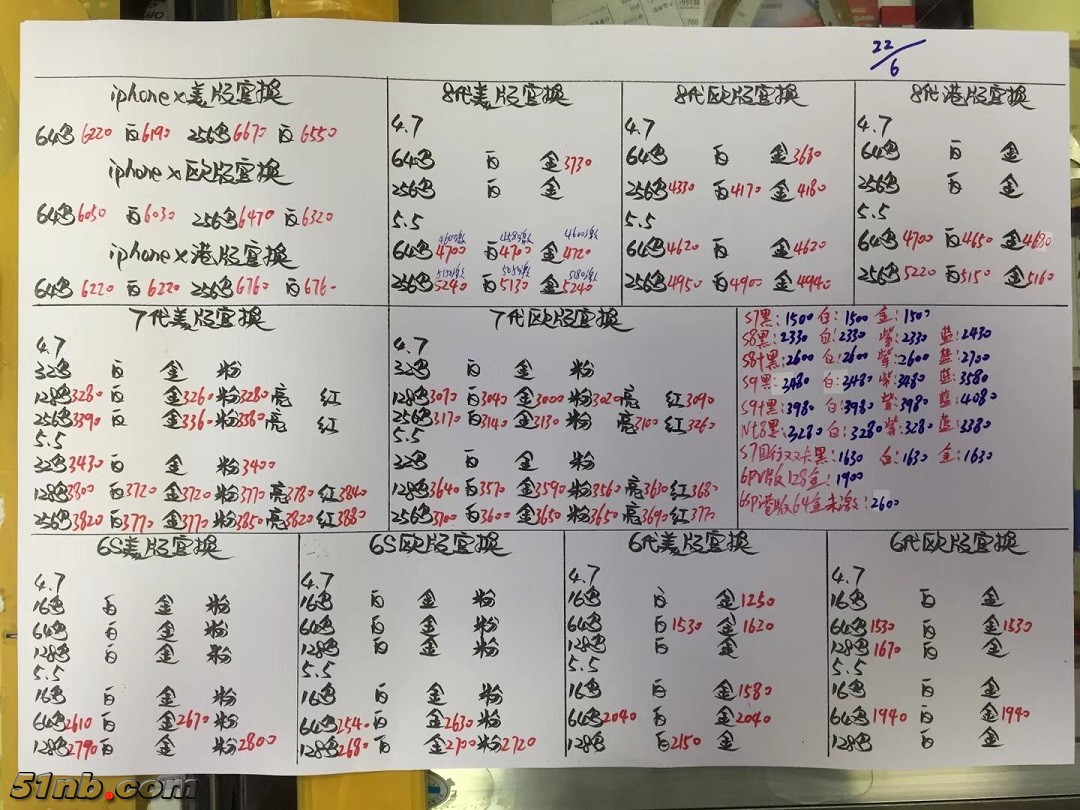 22/6
iphone x美版官换
64鸟6220 白6190 256鸟6670 白6550
iphone x欧版官换
64鸟6050 白6030 256鸟6470 白6320
iphone x港版官换
64鸟6220 白6220 256鸟6760 白676
8代美版官换
4.7
64鸟 白 金3730
256鸟 白 金
5.5
64鸟4700 白4700 金4720
256鸟5240 白5130 金5240
8代欧版官换
4.7
64鸟 白 金3680
256鸟4330 白4170 金4180
5.5
64鸟4620 白 金4620
256鸟4950 白4900 金4940
8代港版官换
4.7
64鸟 白 金
256鸟 白 金
5.5
64鸟4700 白4650 金4680
256鸟5220 白5150 金5160
7代美版官换
4.7
32鸟 白 金 粉
128鸟3280 白 金3260 粉3280 亮 红
256鸟3390 白 金3360 粉3380 亮 红
5.5
32鸟3430 白 金 粉3400
128鸟3800 白3720 金3720 粉3770 亮3780 红3840
256鸟3820 白3770 金3770 粉3850 亮3820 红3880
7代欧版官换
4.7
32鸟 白 金 粉
128鸟3070 白3040 金3000 粉3020 亮 红3090
256鸟3170 白3140 金3130 粉 亮3100 红3260
5.5
32鸟 白 金 粉
128鸟3640 白3570 金3590 粉3560 亮3630 红3680
256鸟3700 白3600 金3650 粉3650 亮3690 红3770
S7黑:1500 白:1500 金:1500
S8黑:2330 白:2330 紫:2330 蓝:2430
S8+黑:2600 白:2600 紫:2600 蓝:2700
S9黑:3480 白:3480 紫:3480 蓝:3580
S9+黑:3980 白:3980 紫:3980 蓝:4080
Nt8黑:3280 白:3280 紫:3280 蓝:3380
S7国行双卡黑:1630 白:1630 金:1630
6P港版128金:1900
6SP港版64金未激:2600
6S美版官换
4.7
16鸟 白 金 粉
64鸟 白 金 粉
128鸟 白 金 粉
5.5
16鸟 白 金 粉
64鸟2610 白 金2670 粉
128鸟2790 白 金 粉2800
6S欧版官换
4.7
16鸟 白 金 粉
64鸟 白 金 粉
128鸟 白 金 粉
5.5
16鸟 白 金 粉
64鸟2540 白 金2630 粉
128鸟2680 白 金2700 粉2720
6代美版官换
4.7
16鸟 白 金1250
64鸟 白1530 金1620
128鸟 白 金
5.5
16鸟 白 金1580
64鸟2040 白 金2040
128鸟 白2150 金
6代欧版官换
4.7
16鸟 白 金
64鸟1530 白 金1530
128鸟1670 白 金
5.5
16鸟 白 金
64鸟1940 白 金1940
128鸟 白 金
51nb.com